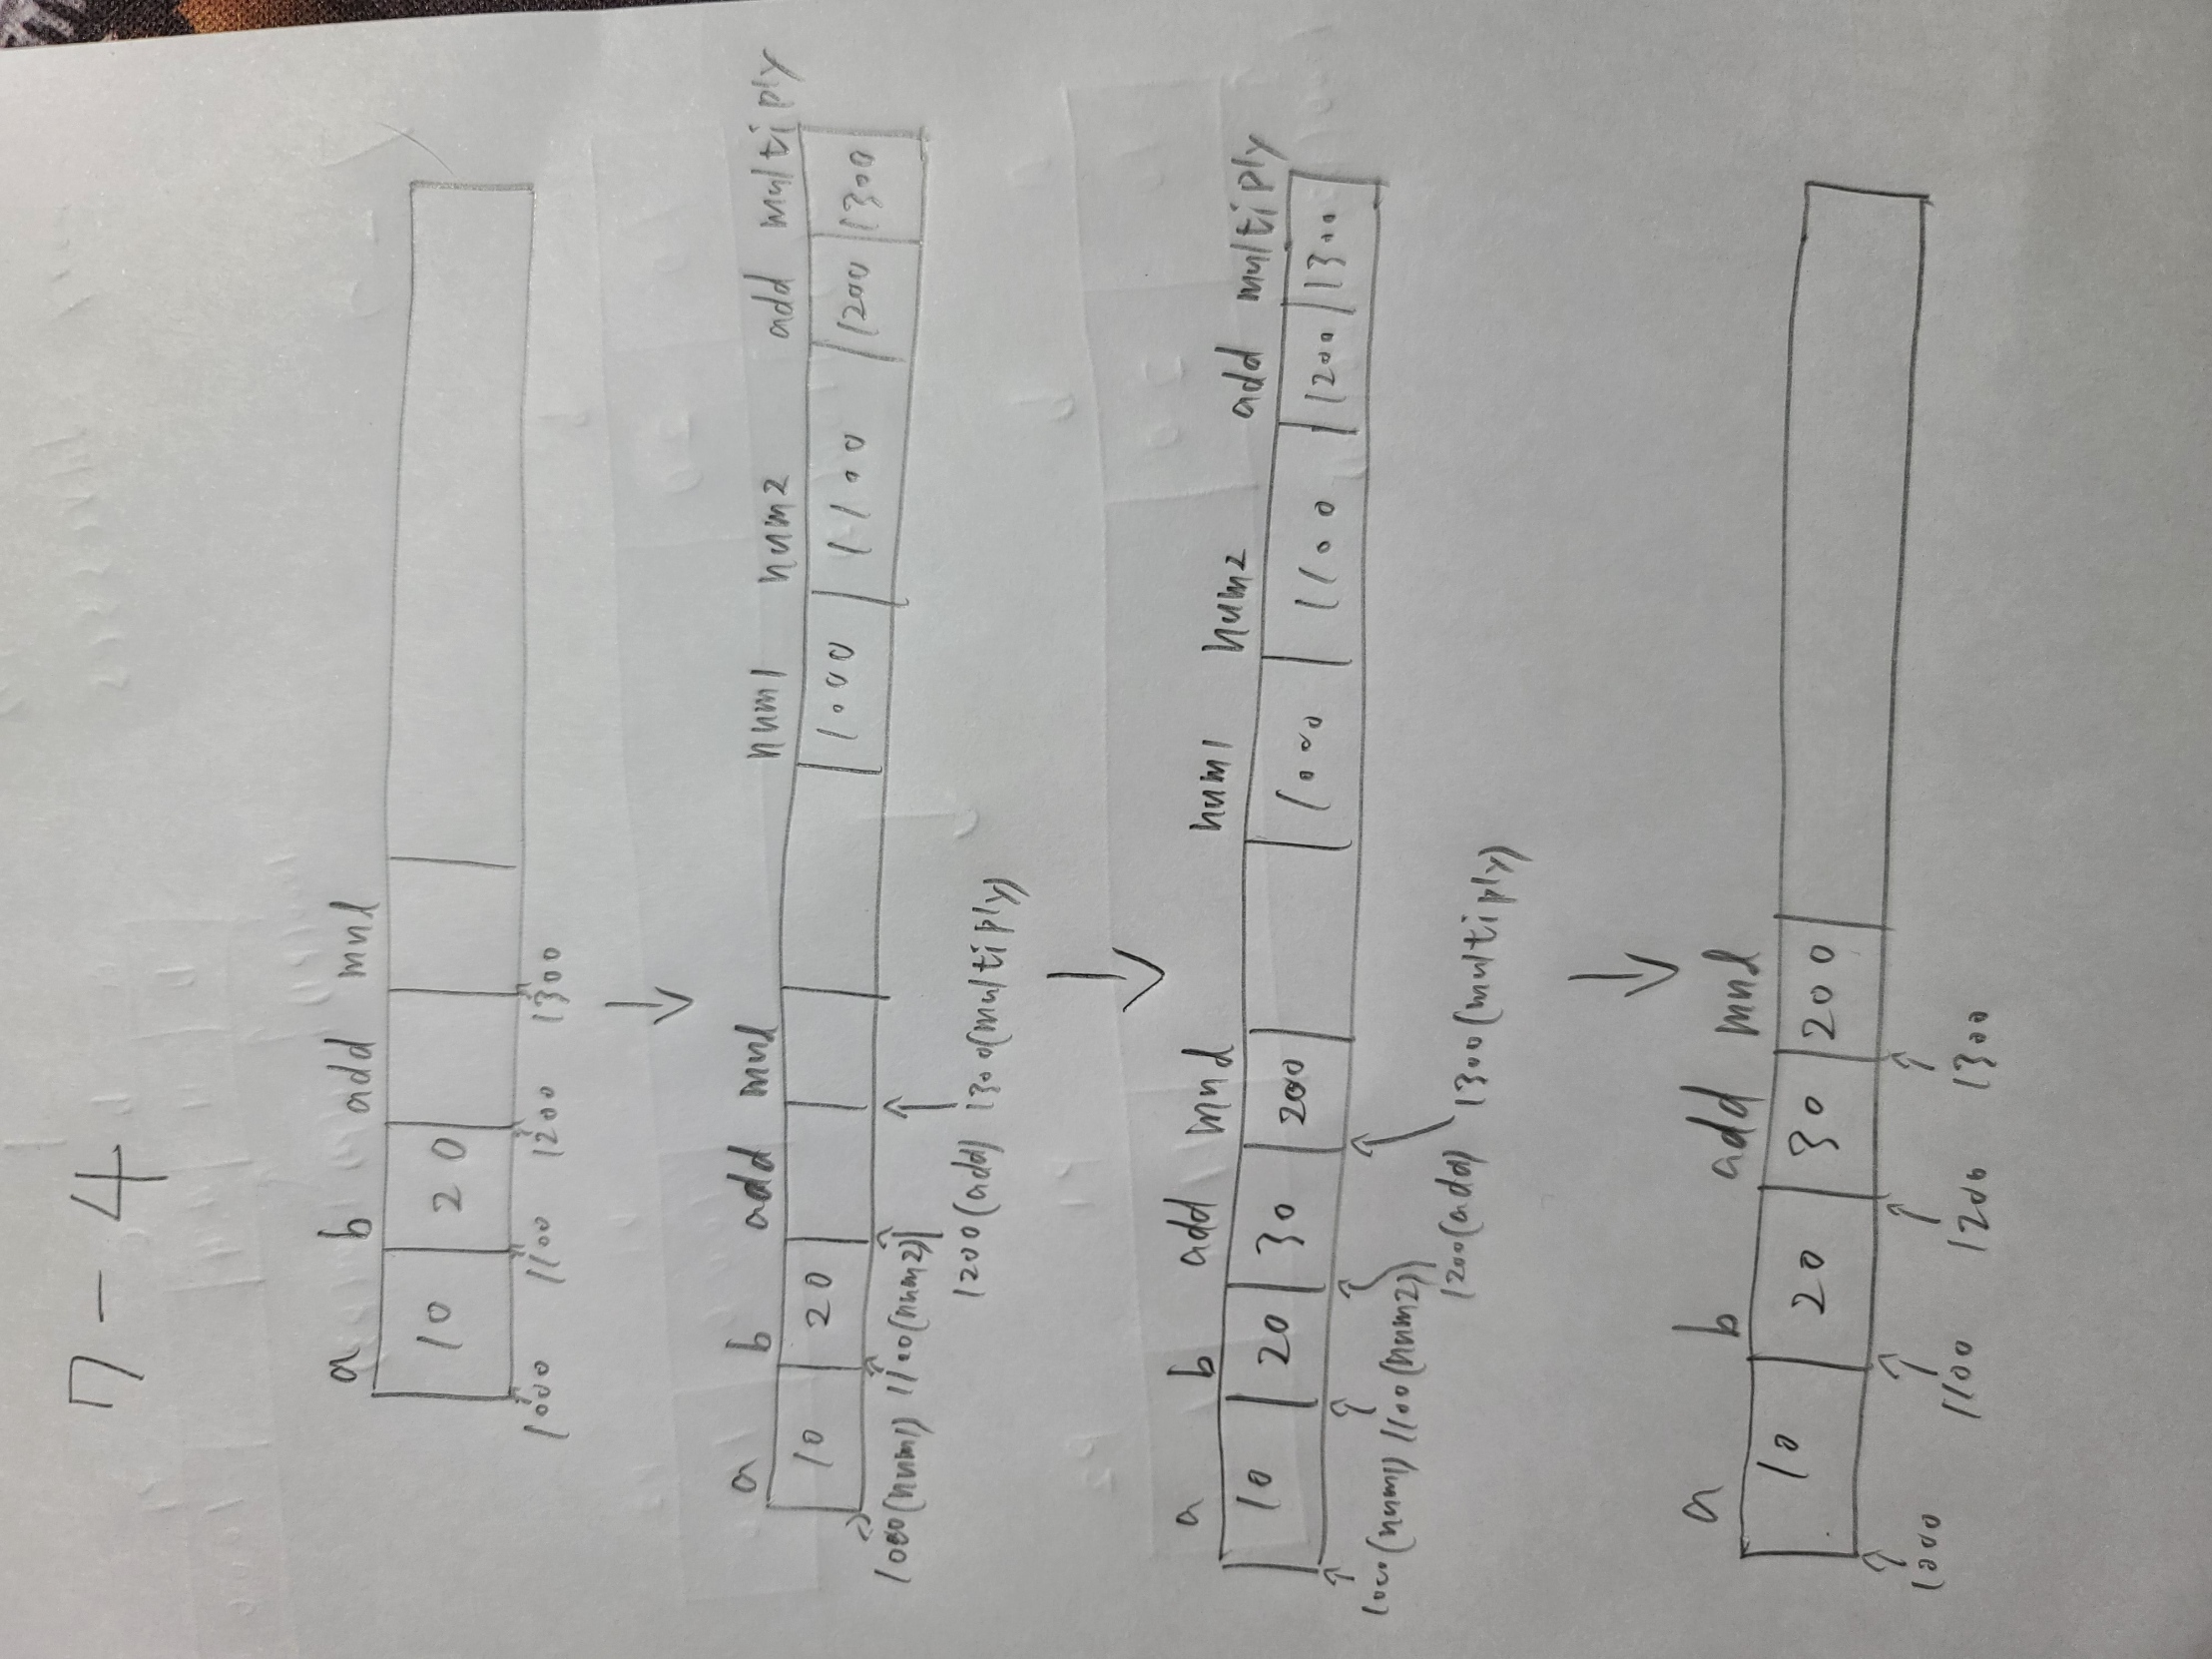 7-4
a b add mul
10 20
1000 1100 1200 1300
a b add mul num1 num2 add multiply
10 20 1000 1100 1200 1300
1000(num1) 1100(num2)
1200(add) 1300(multiply)
a b add mul num1 num2 add multiply
10 20 30 200 1000 1100 1200 1300
1000(num1) 1100(num2)
1200(add) 1300(multiply)
a b add mul
10 20 30 200
1000 1100 1200 1300